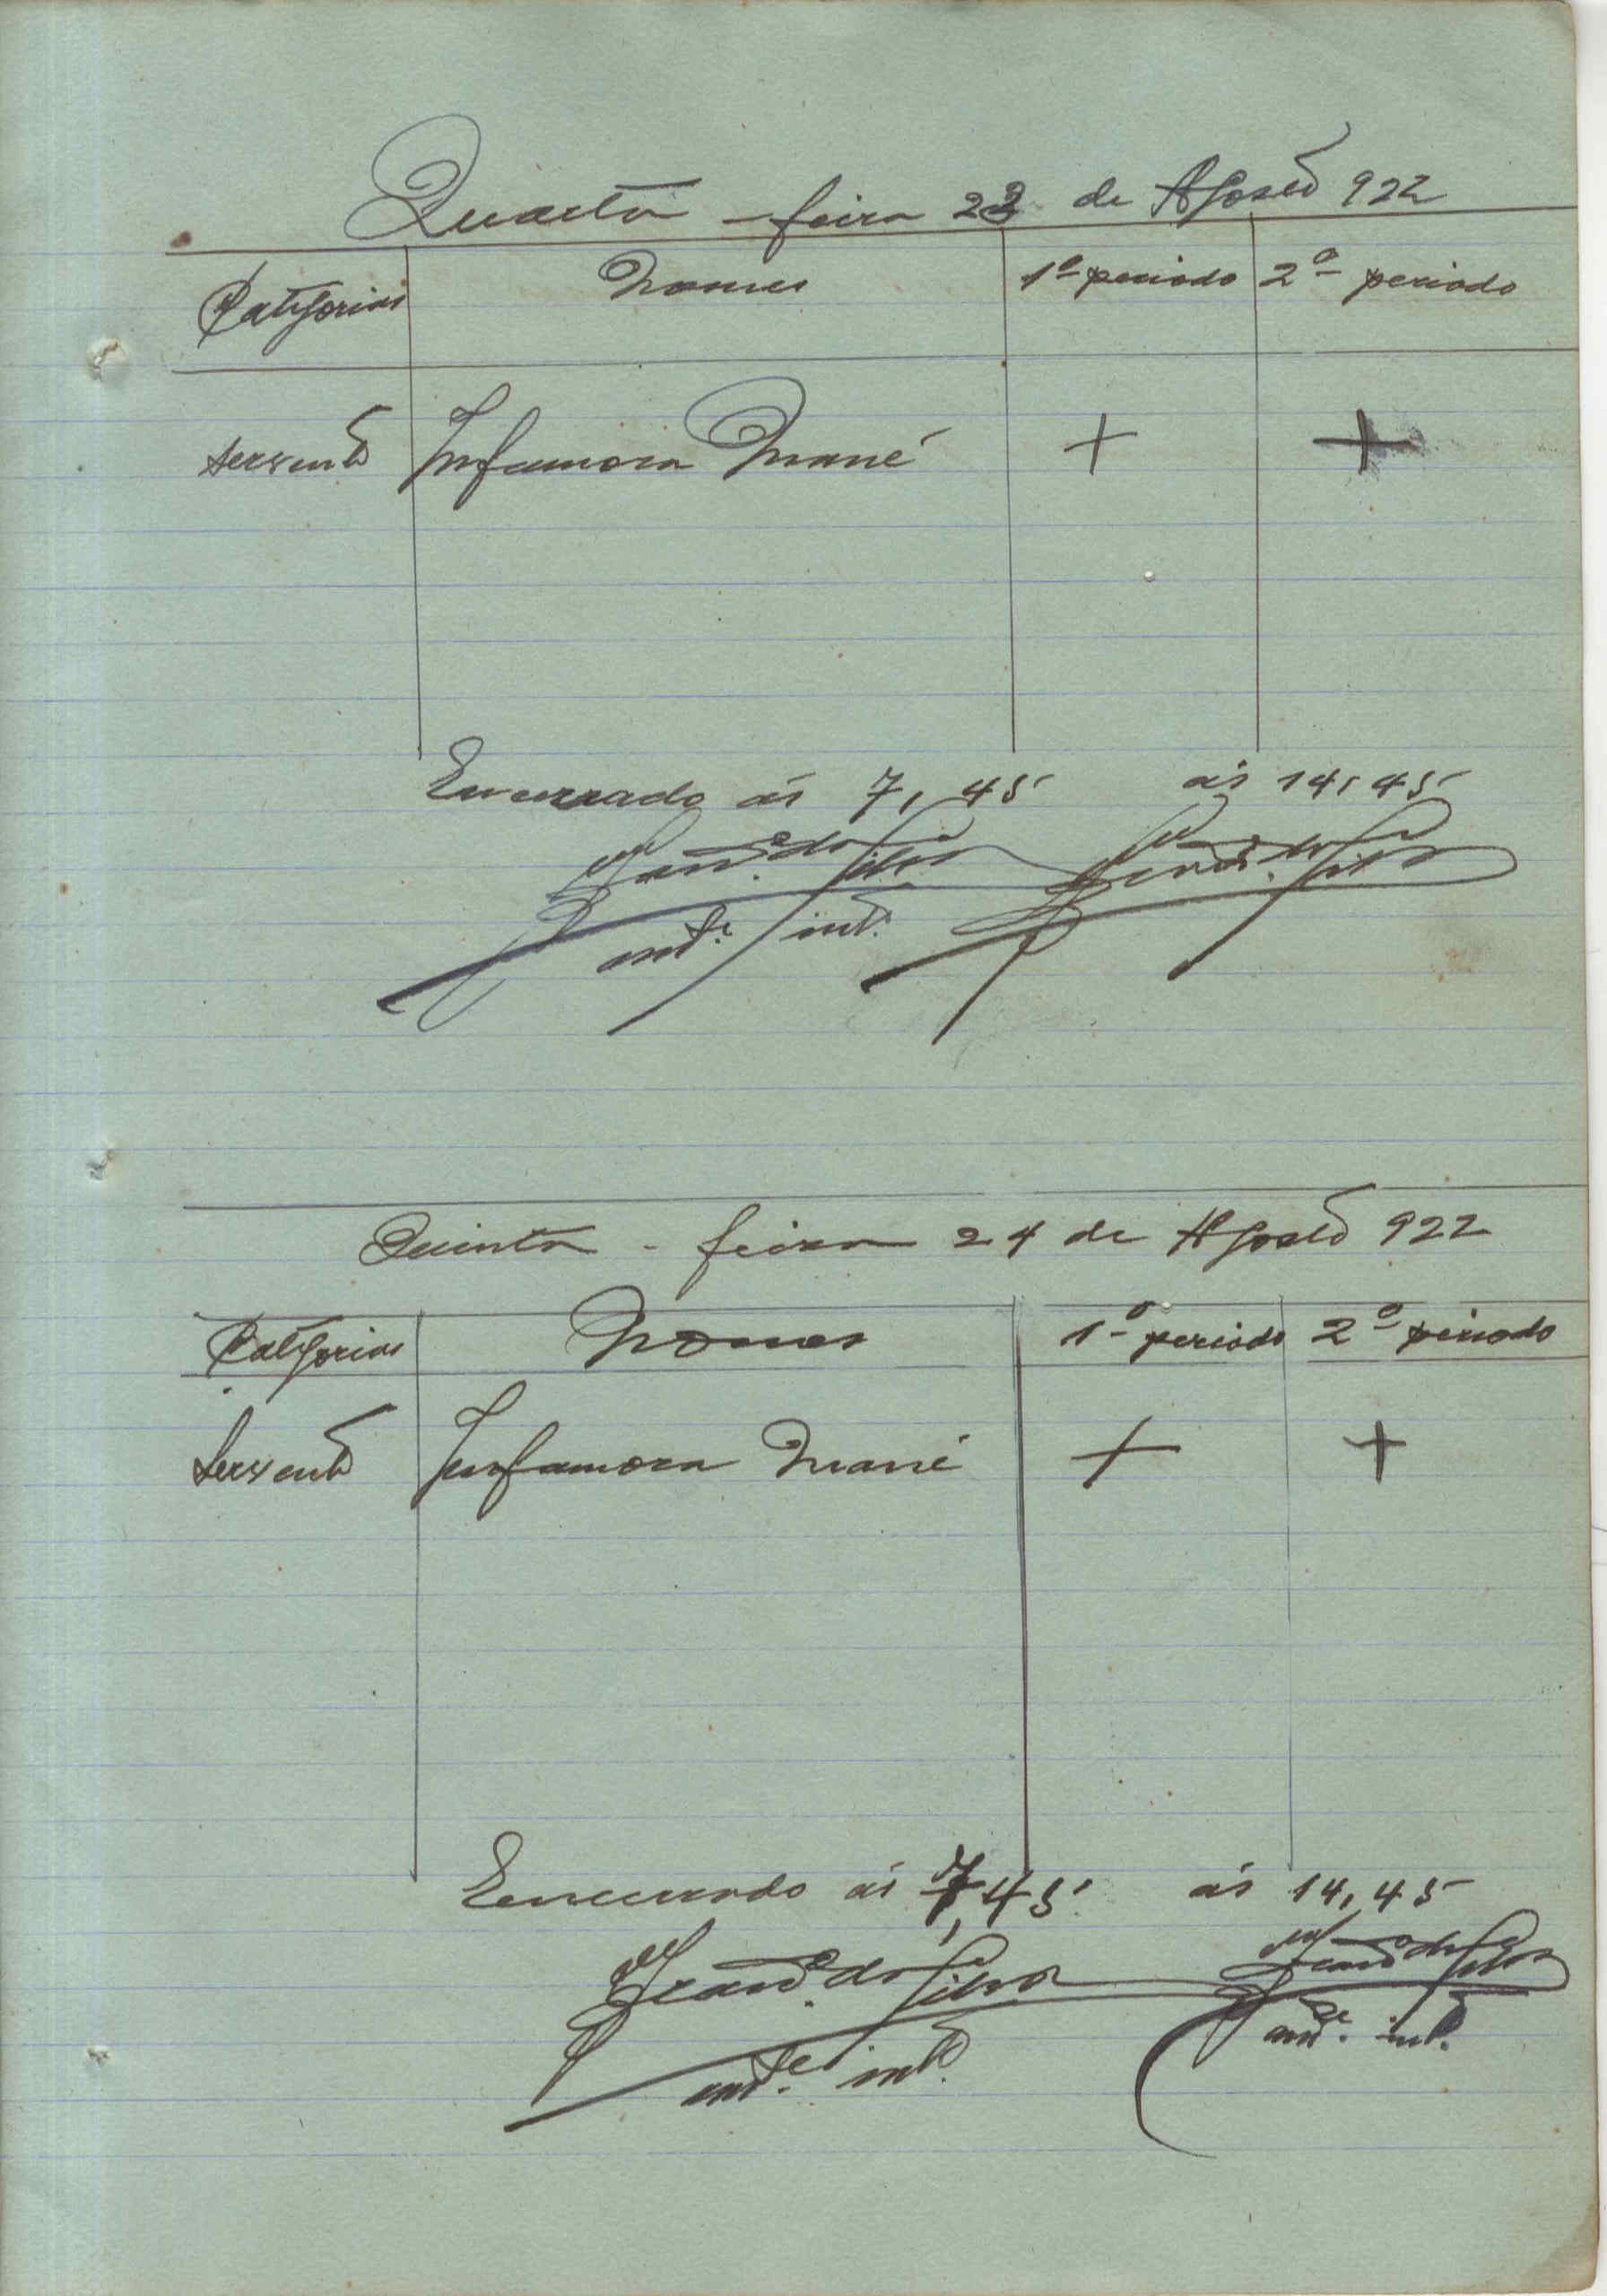 Quarta - feira 23 de Agosto 922
Categorias Nomes 1º periodo 2º periodo
servente Infamora Mané + +
Encerrado ás 7,45 ás 14,45
da Silva da Silva
int.
Quinta - feira 24 de Agosto 922
Categorias Nomes 1º periodo 2º periodo
Servente Infamora Mané + +
Encerrado ás 7,45 ás 14,45
da Silva da Silva
int. int.